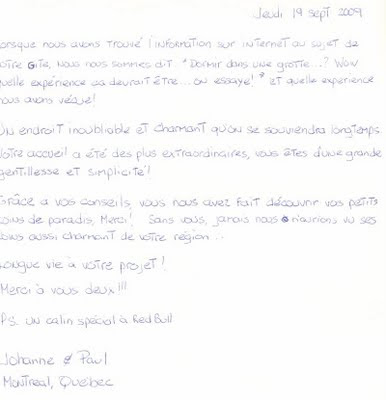 Jeudi 19 sept 2009
Lorsque nous avons trouvé l'information sur internet au sujet de
votre Gîte, nous nous sommes dit "Dormir dans une grotte...? Wow
quelle expérience ça devrait être... on essaye!" et quelle expérience
nous avons vécue!
Un endroit inoubliable et charmant qu'on se souviendra longtemps
Votre accueil a été des plus extraordinaires, vous êtes d'une grande
gentillesse et simplicité!
Grâce a vos conseils, vous nous avez fait découvrir vos petits
coins de paradis, Merci! Sans vous, jamais nous n'aurions vu ses
coins aussi charmant de votre région...
Longue vie à votre projet!
Merci à vous deux!!!
P.S. un calin spécial à Red Bull
Johanne & Paul
Montreal, Québec